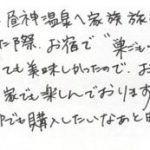 昼神温泉へ家族旅
た際、お宿で"巣ごも
ても美味しかったので、お
家でも楽しんでおります
でも購入したいなぁと